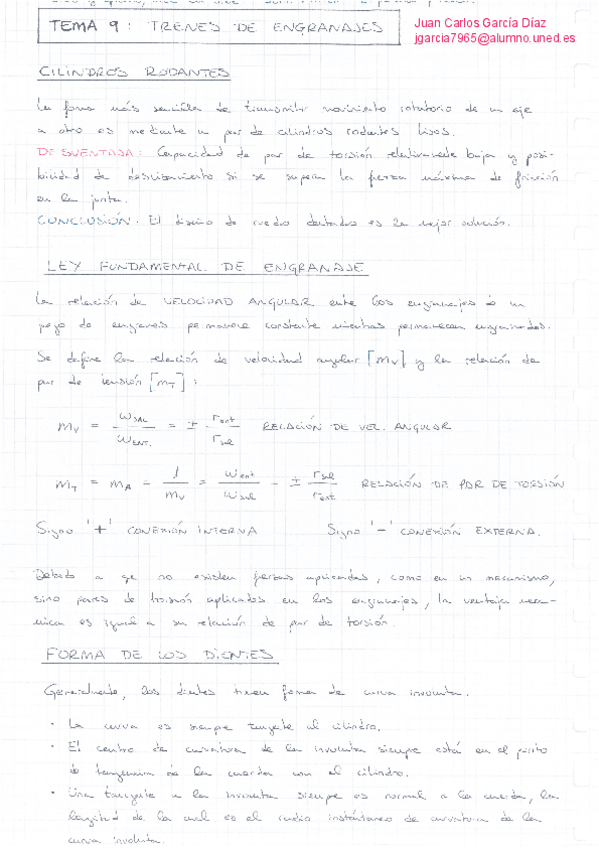 TEMA 9: TRENES DE ENGRANAJES
Juan Carlos García Díaz
jgarcia7965@alumno.uned.es
CILINDROS RODANTES
La forma más sencilla de transmitir movimiento rotatorio de un eje
a otro es mediante un par de cilindros rodantes lisos.
DESVENTAJA: Capacidad de par de torsión relativamente baja y posi-
bilidad de deslizamiento si se supera la fuerza máxima de fricción
en la junta.
CONCLUSIÓN. El diseño de ruedas dentadas es la mejor solución.
LEY FUNDAMENTAL DE ENGRANAJE
La relación de VELOCIDAD ANGULAR entre los engranajes de un
juego de engranes permanece constante mientras permanecen engranados.
Se define la relación de velocidad angular [mV] y la relación de
par de torsión [mT]:
mV = ωSAL / ωENT. = ± rent / rsal RELACIÓN DE VEL. ANGULAR
mT = mA = 1 / mV = ωent / ωsal = ± rsal / rent RELACIÓN DE PAR DE TORSIÓN
Signo '+' CONEXIÓN INTERNA Signo '-' CONEXIÓN EXTERNA.
Debido a que no existen fuerzas aplicadas, como en un mecanismo,
sino pares de torsión aplicados en los engranajes, la ventaja mecá-
nica es igual a su relación de par de torsión.
FORMA DE LOS DIENTES
Generalmente, los dientes tienen forma de curva involuta.
· La curva es siempre tangente al cilindro.
· El centro de curvatura de la involuta siempre está en el punto
de tangencia de la cuerda con el cilindro.
· Una tangente a la involuta siempre es normal a la cuerda, la
longitud de la cual es el radio instantáneo de curvatura de la
curva involuta.